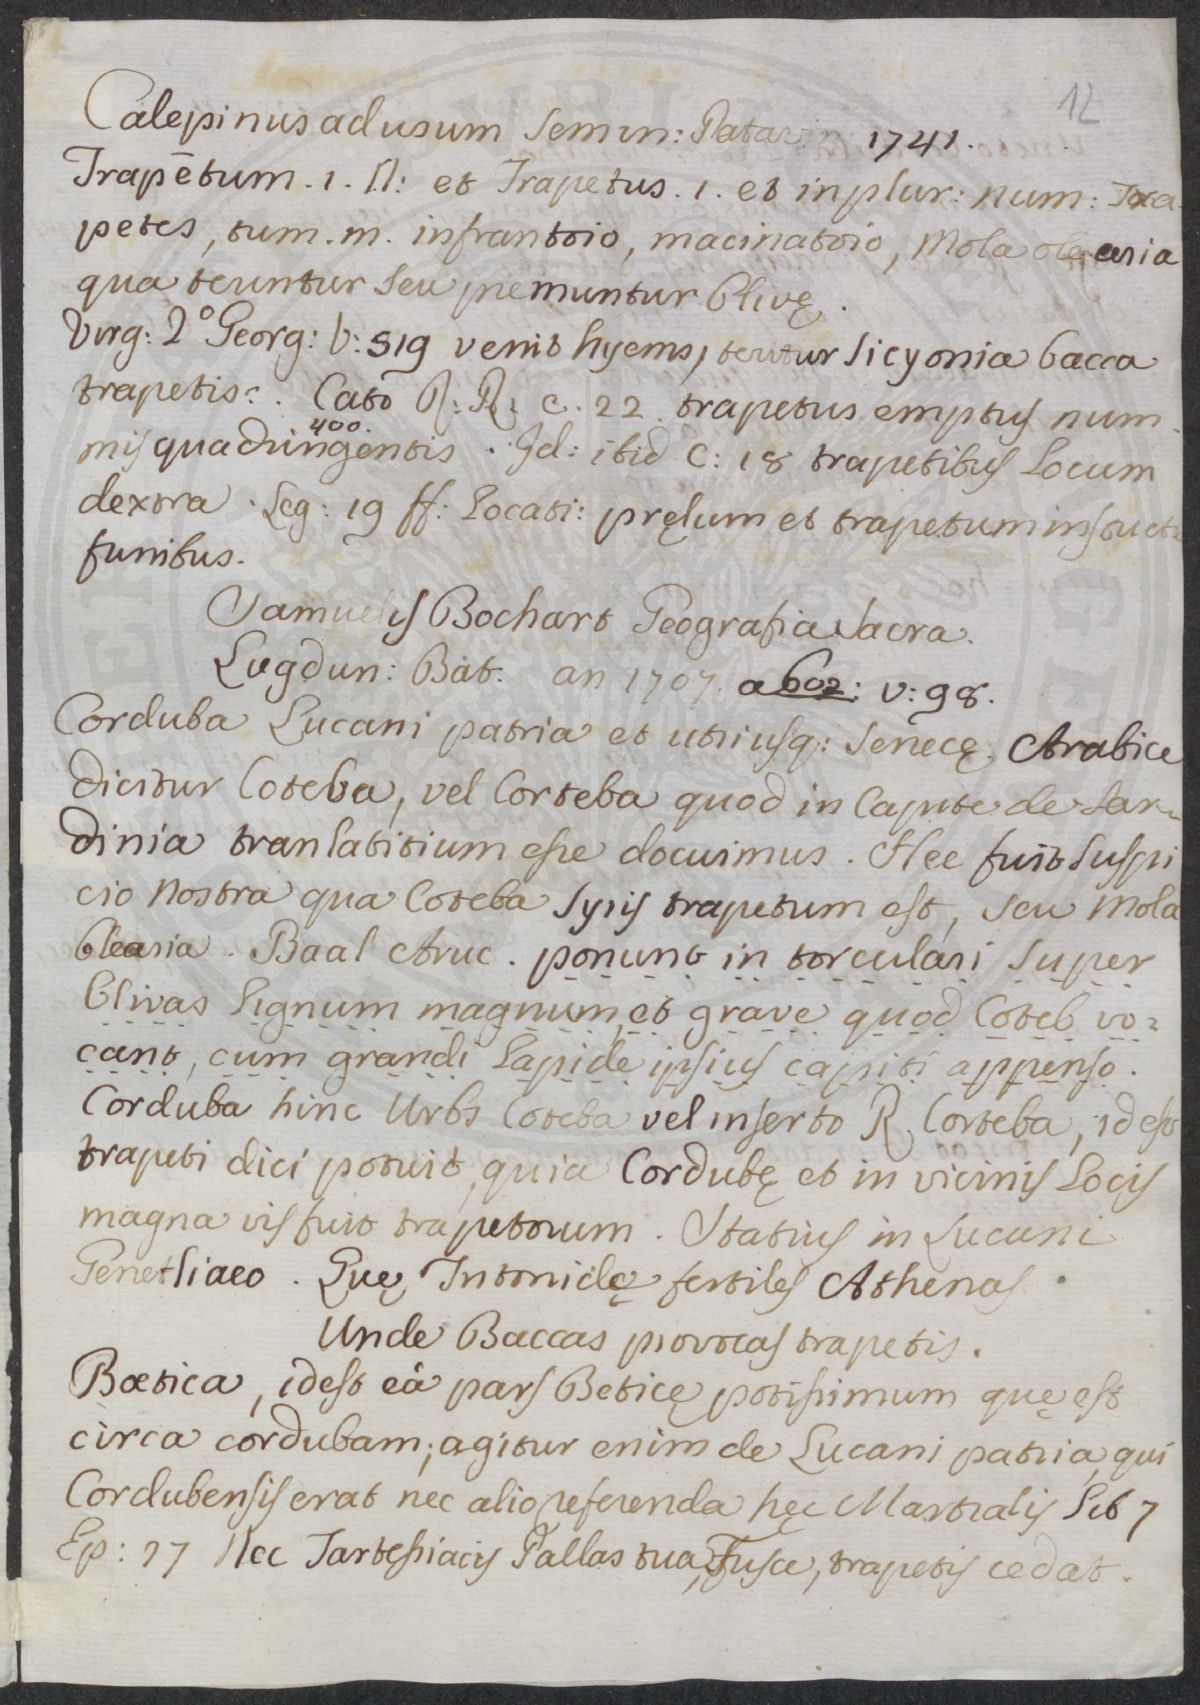 12
Calepinus ad usum Semin: Patavin 1741.
Trapētum. i. n: et Trapetus. i. et in plur: num: Tra-
petes, tum. m. infrantoio, macinatoio, Mola olearia
qua teruntur seu premuntur Olivę.
Virg: 2º Georg: v: 519 venit hyems, teritur sicyonia bacca
trapetis: . Cato R: R: c. 22. trapetus emptus num-
mis quadringentis . Id: ibid C: 18 trapetibus Locum
400.
dextra . Leg: 19 ff: Locati: pręlum et trapetum instructū
funibus.
Samuelis Bochart Geografia Sacra.
Lugdun: Bat: an 1707. a 602: v: 98.
Corduba Lucani patria et utriusq: Senecę. Arabice
dicitur Coteba, vel Corteba quod in Capite de Sar-
dinia tranlatitium esse docuimus. Hec fuit suspi
cio nostra qua Coteba Syris trapetum est, seu Mola
Olearia. Baal Aruc. ponunt in torculari super
Olivas Lignum magnum, et grave quod Coteb vo-
cant, cum grandi Lapide ipsius capiti appenso.
Corduba hinc Urbs Coteba vel inserto R Corteba, id est
trapeti dici potuit, quia Cordubę et in vicinis Locis
magna vis fuit trapetorum. Statius in Lucani
Genetliaco . Quę Tritonidę fertiles Athenas
Unde Baccas provocas trapetis.
Bœtica, idest eà pars Beticę potissimum quę est
circa cordubam; agitur enim de Lucani patria, qui
Cordubensis erat nec alio referenda hęc Martialis Lib 7
Ep: 27 Nec Tartessiacis Pallas tua, Fusce, trapetis cedat.